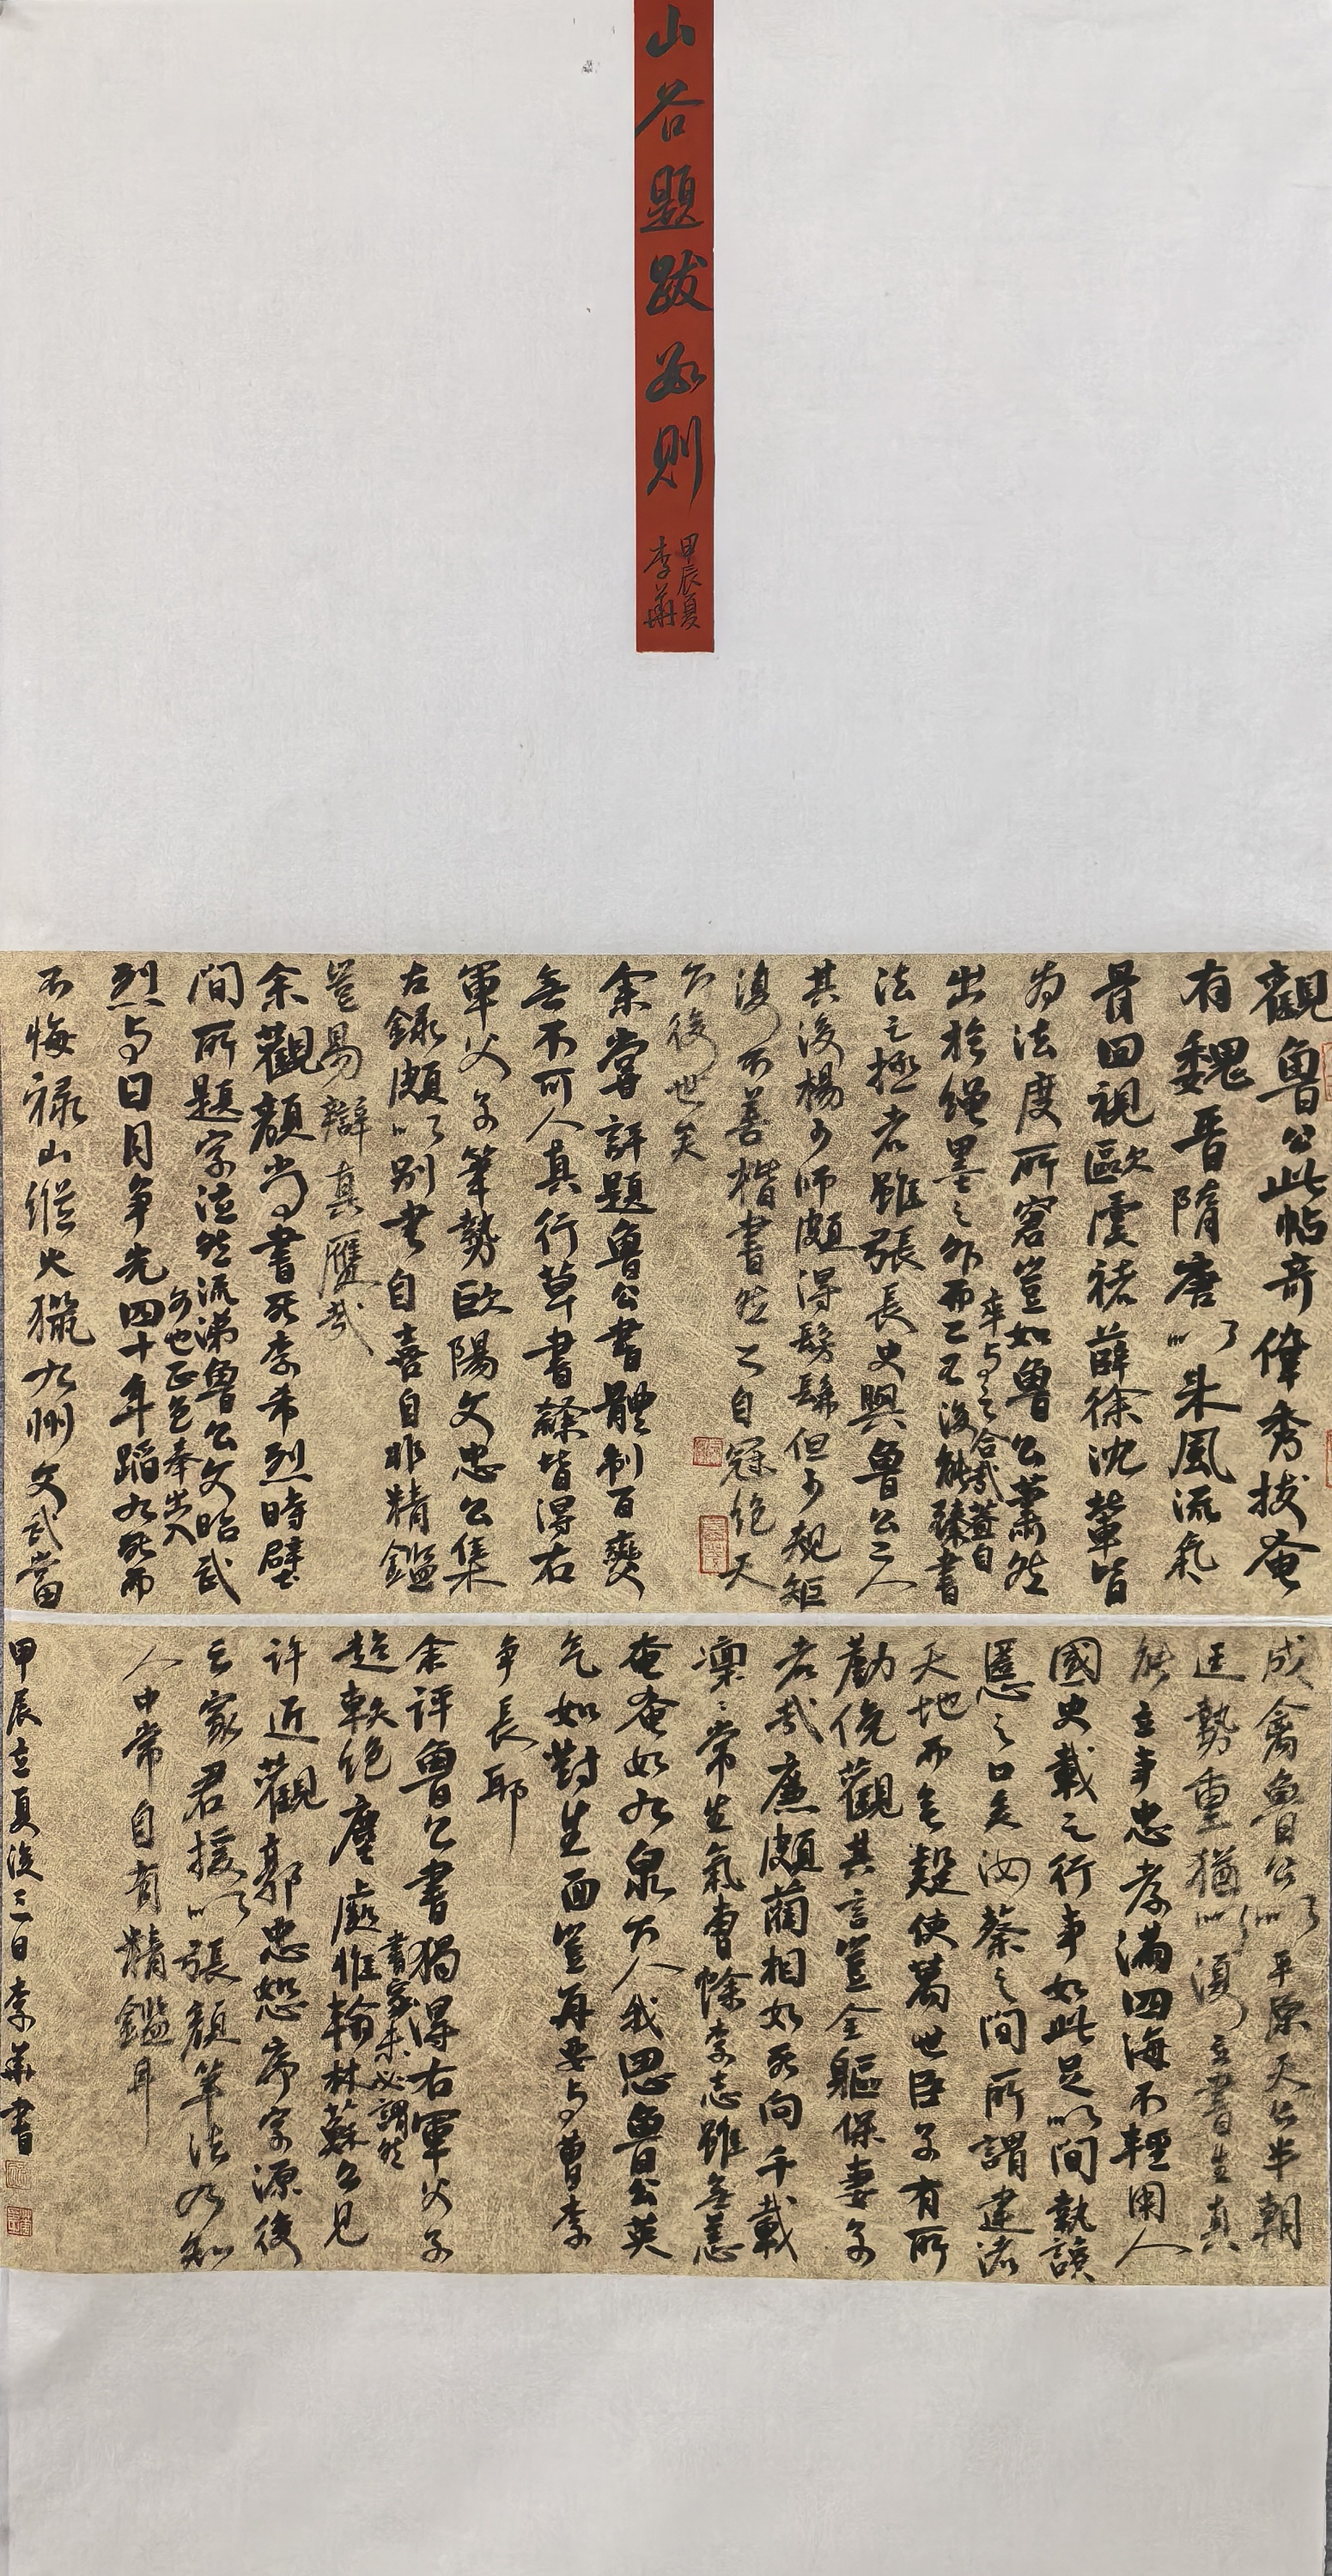 山谷題跋數則
甲辰夏
李華
觀魯公此帖奇偉秀拔奄
有魏晉隋唐以来風流氣
骨回視歐虞褚薛徐沈輩皆
为法度所窘豈如魯公蕭然
出於繩墨之外而卒与之合哉蓋自
二王後能臻書
法之極者雖張長史與魯公二人
其後楊少師頗得髣髴但少規矩
復不善楷書然亦自冠絶天
下後世矣
余嘗評題魯公書體制百變
無不可人真行草書隸皆得右
軍父子筆勢歐陽文忠公集
古錄頗以別書自喜自非精鑑
豈易辯真贋哉
余觀顏尚書死李希烈時壁
間所題字泣然流涕魯公文昭武
烈与日月争先四十年蹈九死而
不悔禄山縱火獵九州文武當
成禽魯公以平原天下半朝
廷勢重猶以復立書生真
能立事忠孝滿四海不輕用人
國史載之行事如此足以間執讒
慝之口矣汝蔡之間所謂建諸
天地而無疑使萬世臣子有所
勸俛觀其言豈全軀保妻子
者哉廉頗藺相如死向千載
凜凜常生氣曹蜍李志雖無恙
奄奄如九泉下人我思魯公英
气如對生面豈再要与曹李
争長耶
余评魯公書獨得右軍父子
超軼絶塵處書家未必謂然
惟翰林蘇公見
许近觀郭忠恕序字源後
云家君授以張顏筆法乃知
人中常自有精鑑耳
甲辰立夏後三日李華書